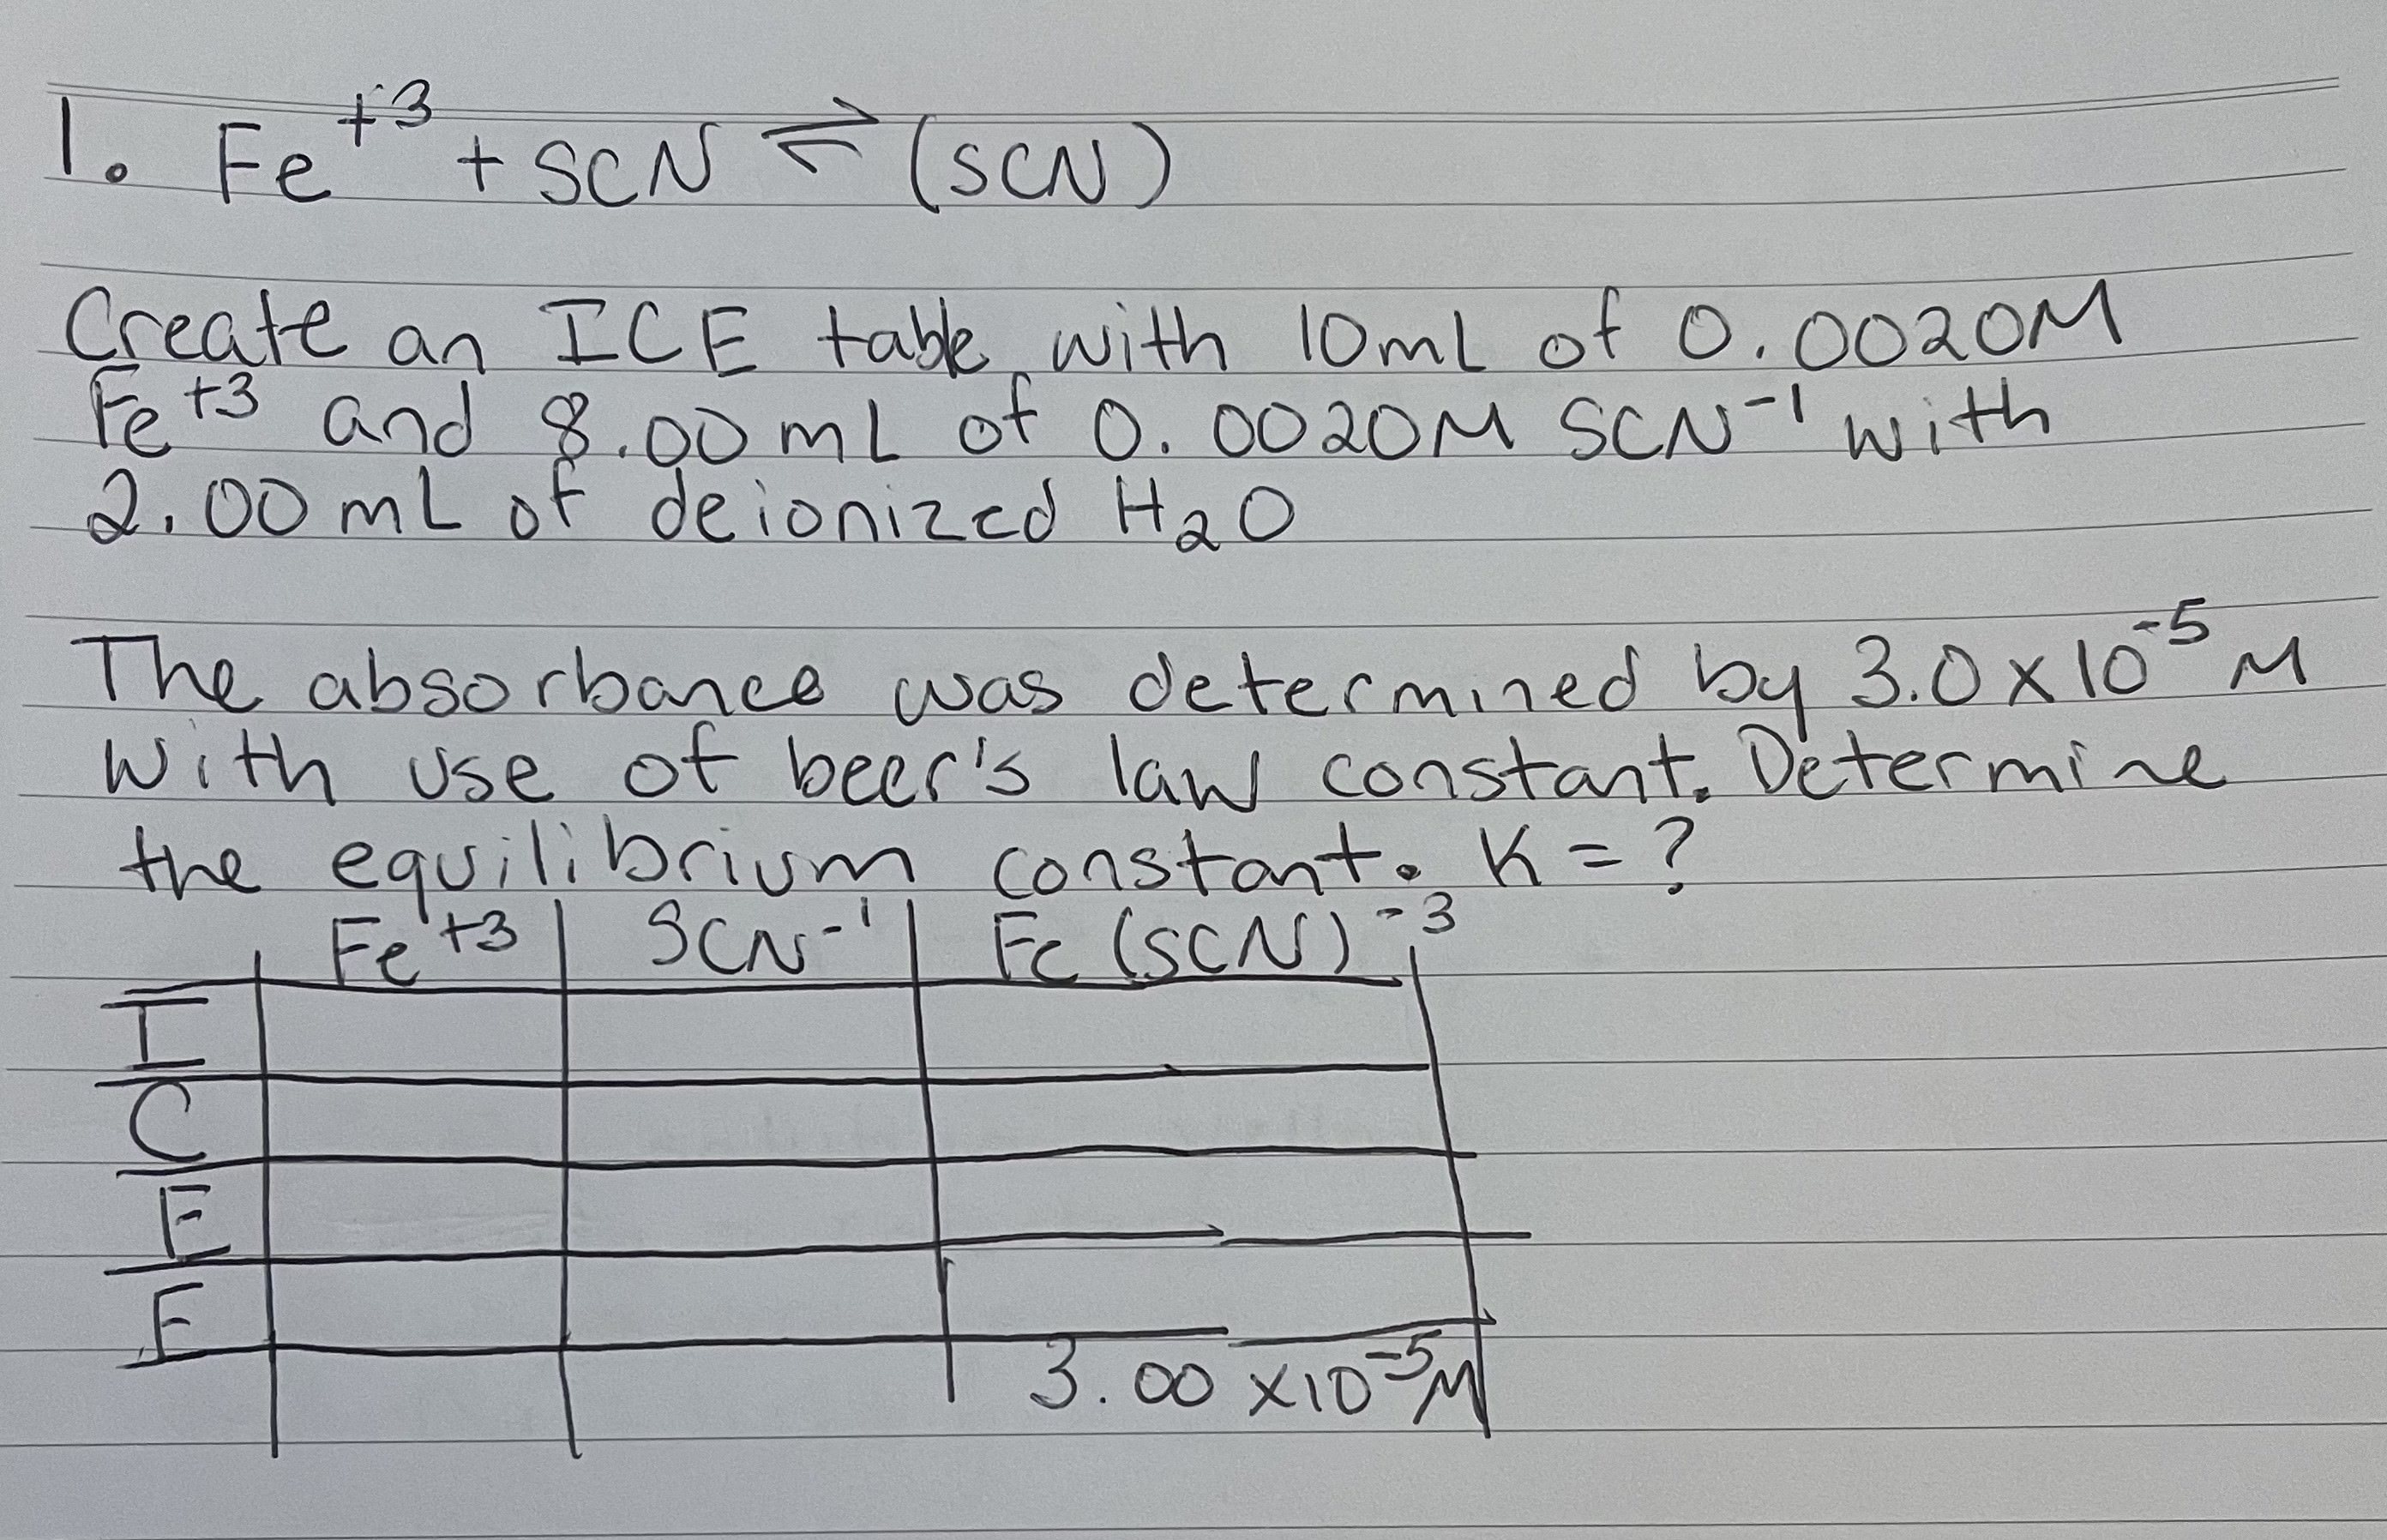 1. Fe⁺³ + SCN ⇌ (SCN)
Create an ICE table with 10mL of 0.0020M
Fe⁺³ and 8.00 mL of 0.0020M SCN⁻¹ with
2.00 mL of deionized H₂O
The absorbance was determined by 3.0 x 10⁻⁵ M
with use of beer's law constant. Determine
the equilibrium constant. K = ?
Fe⁺³ SCN⁻¹ Fe (SCN)⁻³
I
C
E
E
3.00 x10⁻⁵M